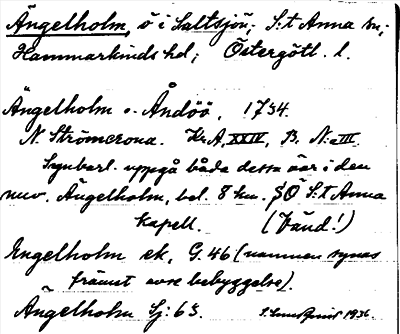 Ängelholm, ö i Saltsjön; S:t Anna sn;
Hammarkinds hd; Östergötl. l.
Ängelholm o. Åndöö, 1734.
N. Strömcrona. Kr.A, XXIV, B. N:o III.
Synbarl. uppgå båda dessa öar i den
nuv. Ängelholm, bel. 8 km. SÖ S:t Anna
kapell. (Vänd!)
Engelholm ek. G. 46 (namnen synas
främst avse bebyggelse).
Ängelholm Sj. 63. 1936